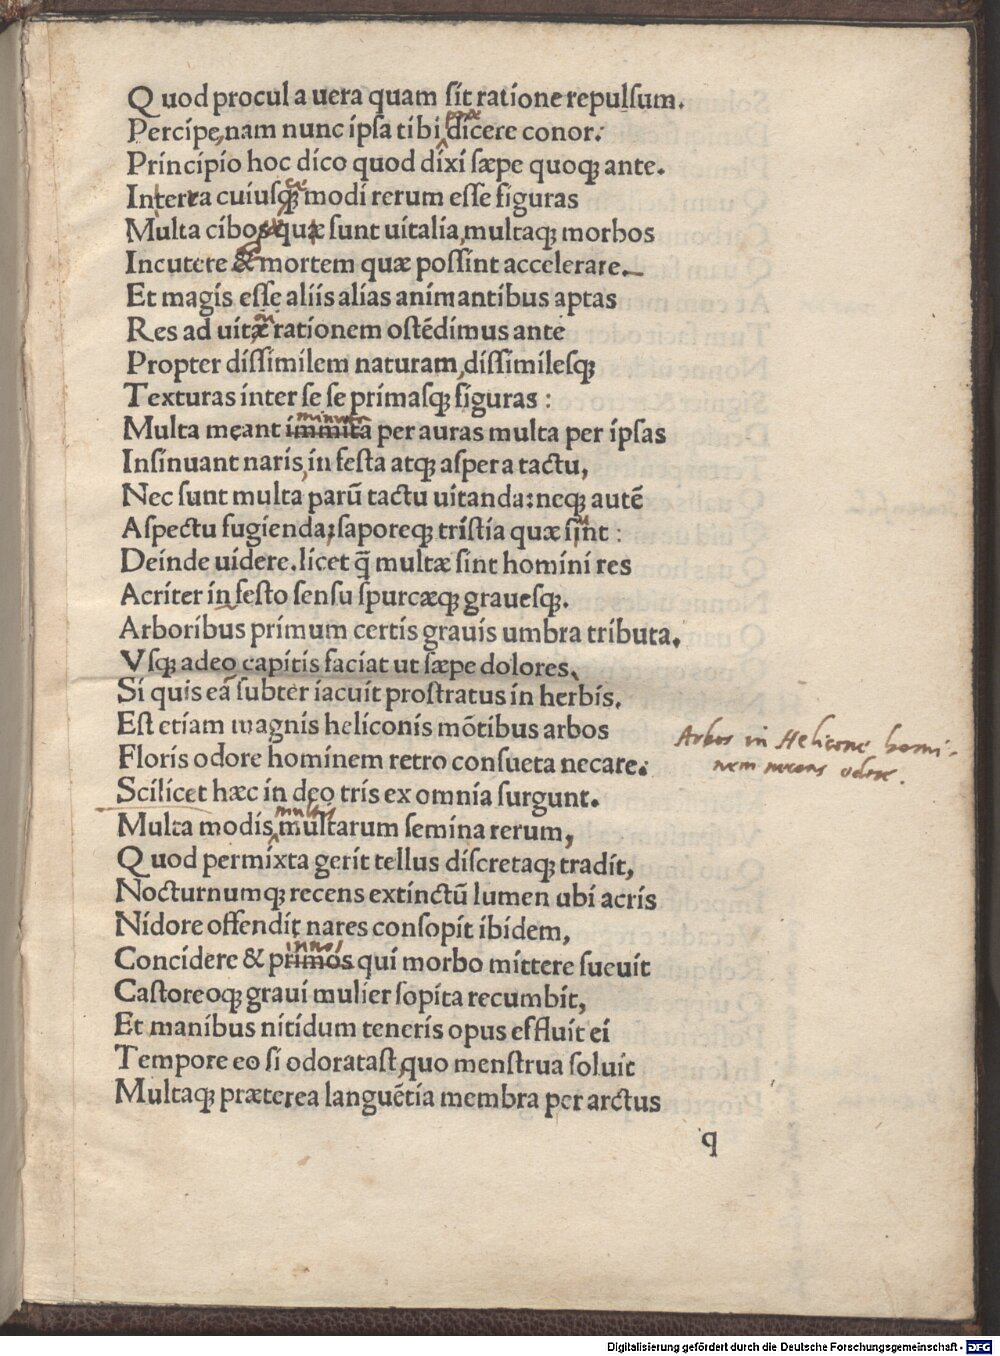 Quod procul a uera quam sit ratione repulsum.
Percipe, nam nunc ipsa tibi dicere conor.
Principio hoc dico quod dixi sæpe quoqꝫ ante.
In terra cuiusqꝫ modi rerum esse figuras
Multa cibos quæ sunt uitalia, multaqꝫ morbos
Incutere & mortem quæ possint accelerare.
Et magis esse aliis alias animantibus aptas
Res ad uitæ rationem ostēdimus ante
Propter dissimilem naturam, dissimilesqꝫ
Texturas inter se se primasqꝫ figuras :
minuta
Multa meant immita per auras multa per ipsas
Insinuant naris, in festa atqꝫ aspera tactu,
Nec sunt multa parū tactu uitanda: neqꝫ autē
Aspectu fugienda; saporeqꝫ tristia quæ sint :
Deinde uidere. licet q̄ multæ sint homini res
Acriter in festo sensu spurcæqꝫ grauesqꝫ.
Arboribus primum certis grauis umbra tributa.
Vsqꝫ adeo capitis faciat ut sæpe dolores.
Si quis eā subter iacuit prostratus in herbis.
Est etiam magnis heliconis mōtibus arbos
Arbor in Helicone homi-
Floris odore hominem retro consueta necare.
nem necans odore.
Scilicet hæc in deo tris ex omnia surgunt.
multis
Multa modis multarum semina rerum,
Quod permixta gerit tellus discretaqꝫ tradit,
Nocturnumqꝫ recens extinctū lumen ubi acris
Nidore offendit nares consopit ibidem,
Concidere & primos qui morbo mittere sueuit
Castoreoqꝫ graui mulier sopita recumbit,
Et manibus nitidum teneris opus effluit ei
Tempore eo si odoratast, quo menstrua soluit
Multaqꝫ præterea languētia membra per arctus
q
Digitalisierung gefördert durch die Deutsche Forschungsgemeinschaft - DFG